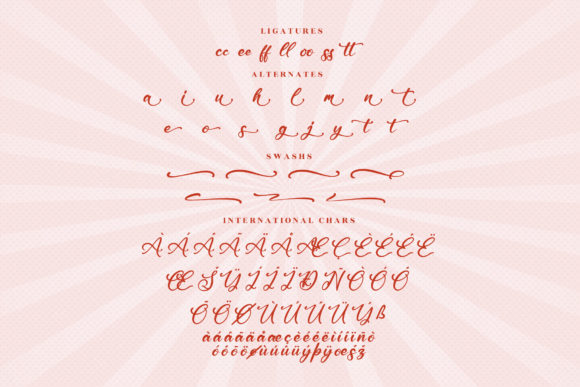 LIGATURES
cc ee ff ll oo ss tt
ALTERNATES
a i u h l m n t
e o s g j y t t
SWASHS
INTERNATIONAL CHARS
À Á Â Ã Ä Å Æ Ç È É Ê Ë
Œ Š Ÿ Í Î Ï Ð Ñ Ò Ó Ô
Õ Ö Ø Ù Ú Û Ü Ý ß
àáâãäåæçèéêëìíîïñò
óôõöøùúûüýþÿœšž